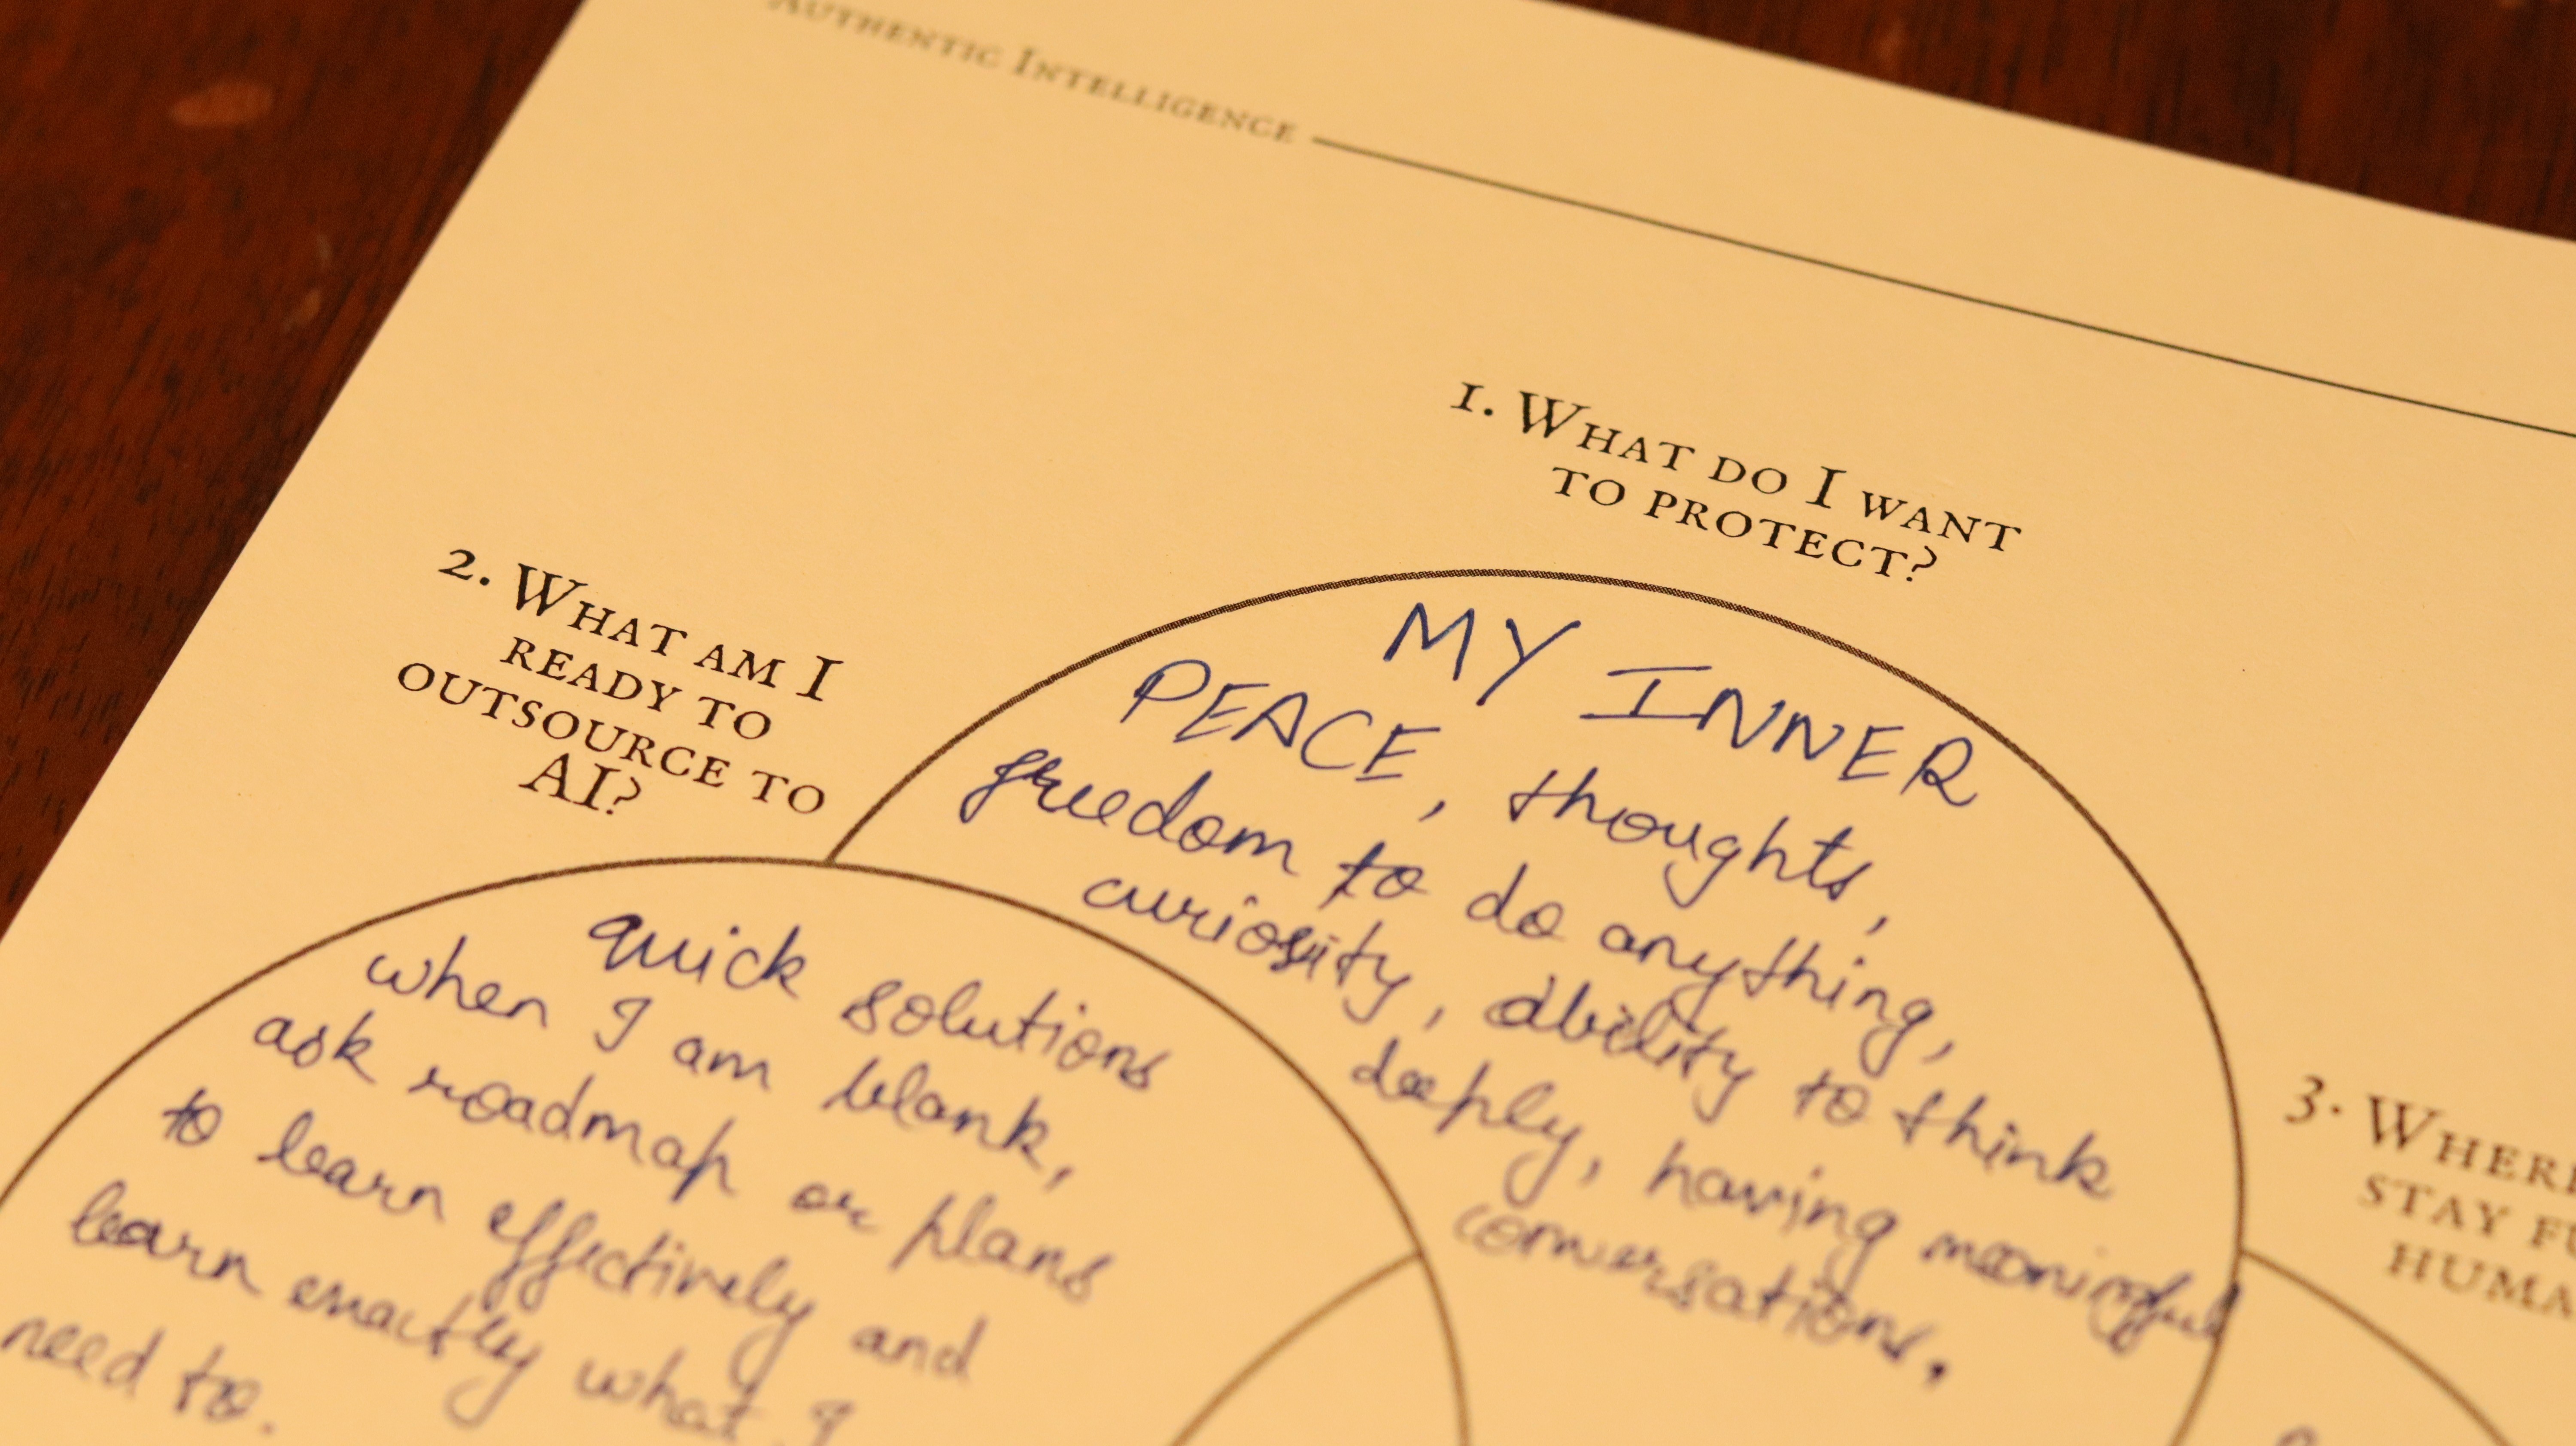 AUTHENTIC INTELLIGENCE
1. WHAT DO I WANT
TO PROTECT?
MY INNER
PEACE, thoughts,
freedom to do anything,
curiosity, ability to think
deeply, having meaningful
conversations.
2. WHAT AM I
READY TO
OUTSOURCE TO
AI?
quick solutions
when I am blank,
ask roadmap or plans
to learn effectively and
learn exactly what I
need to.
3. WHERE
STAY
HUMA